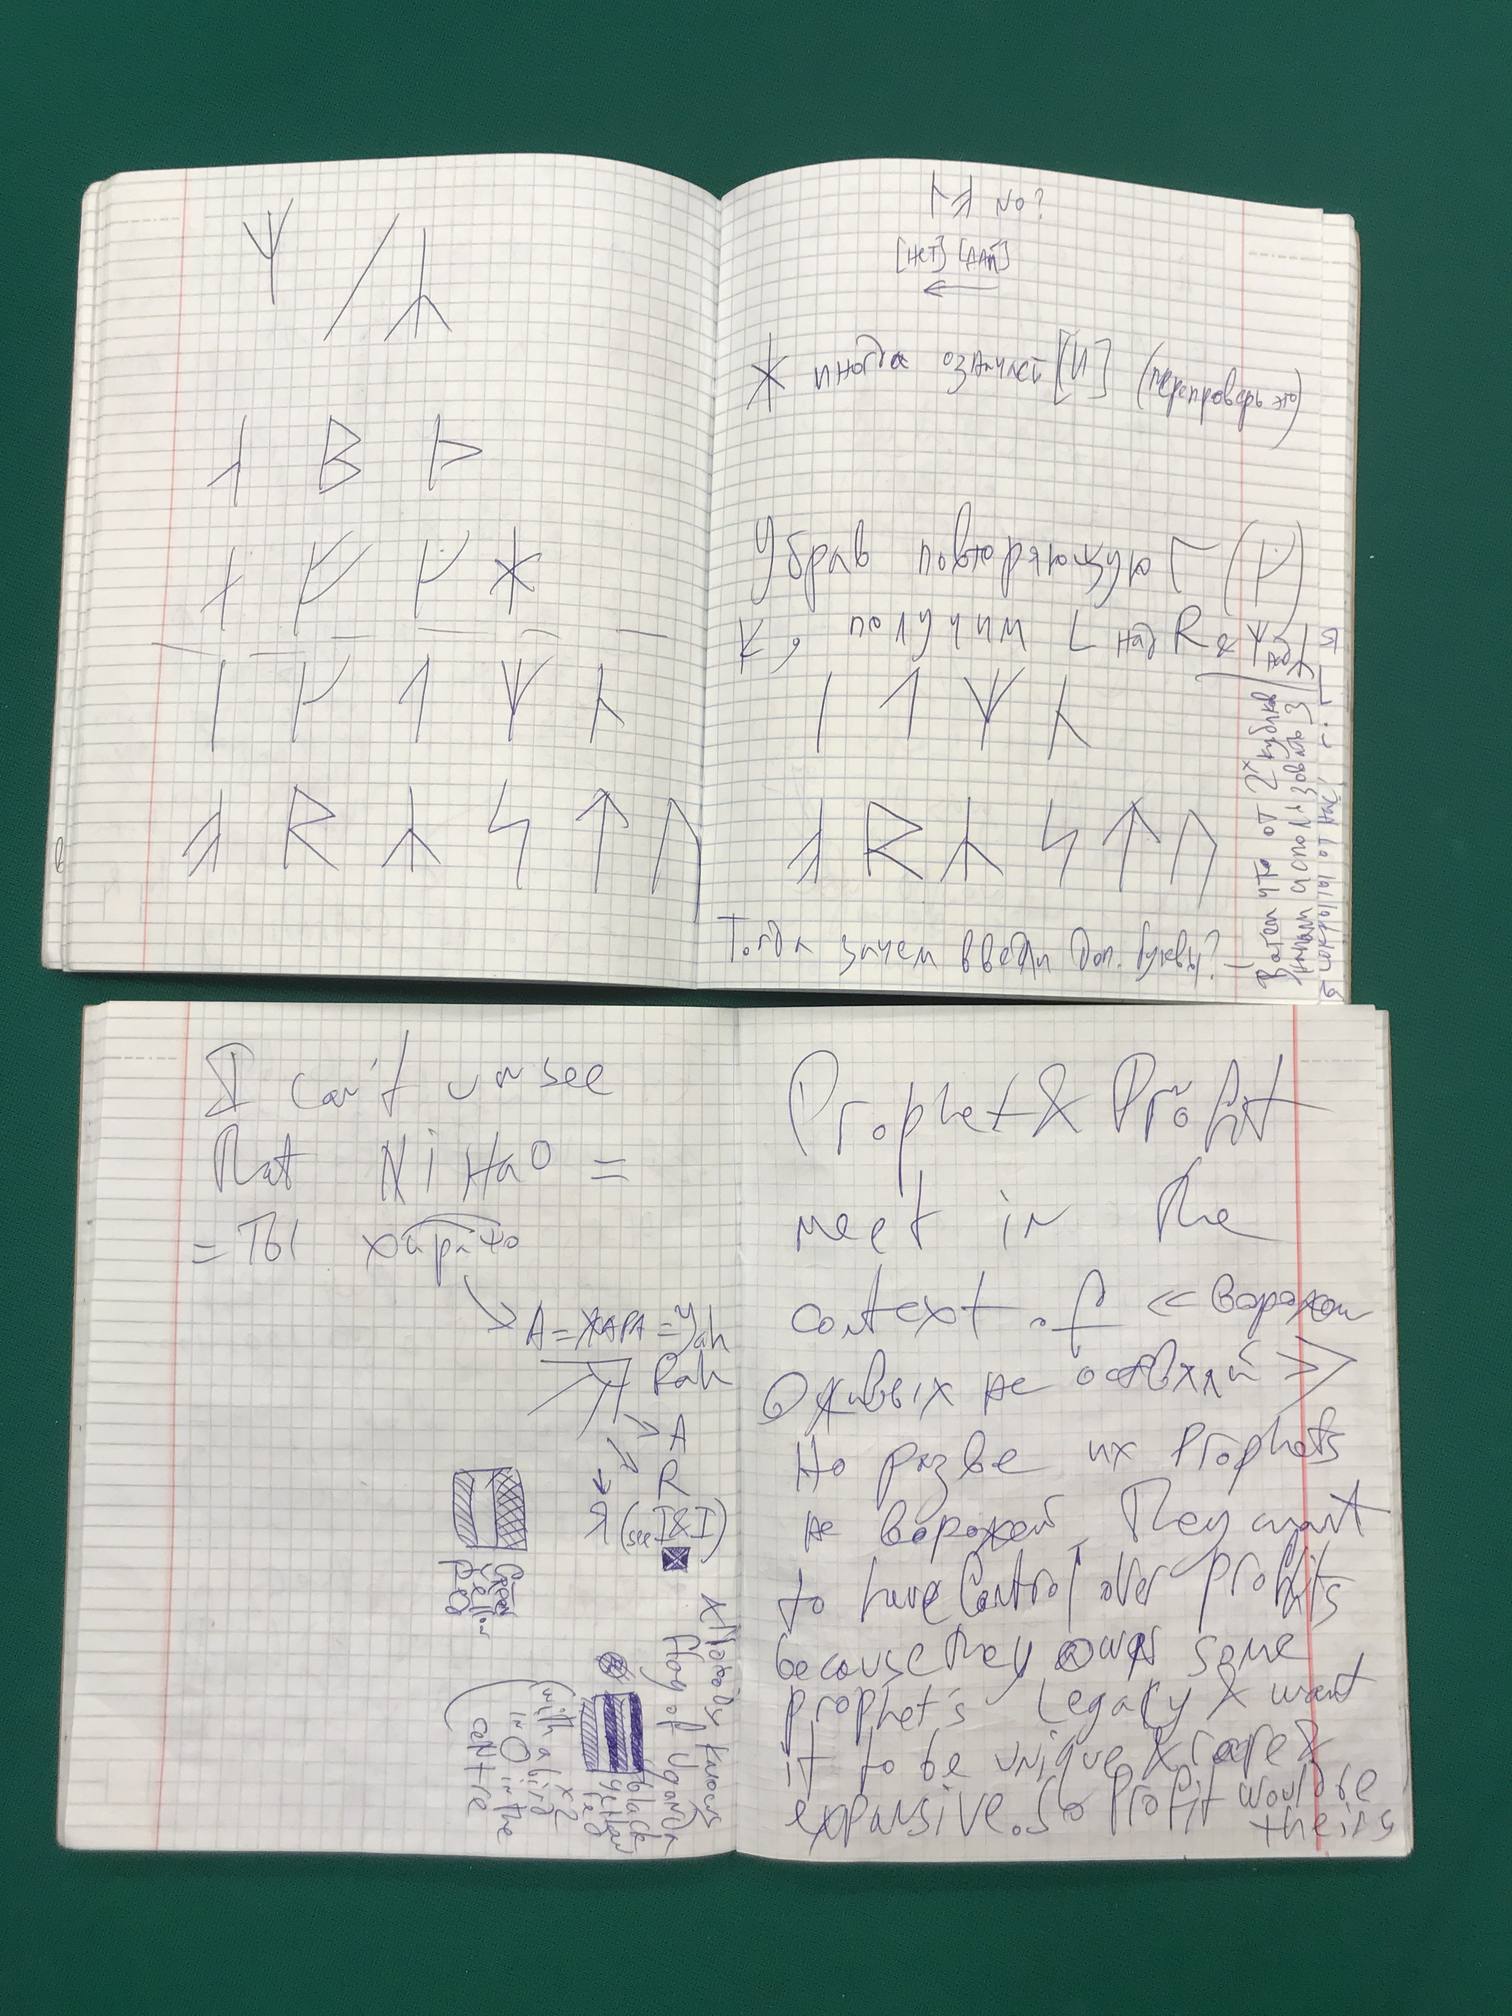 ᛉ / ᛦ
ᛆ ᛒ ᚦ
ᚠ ᚴ ᚼ
ᛁ ᚴ ᛏ ᛉ ᚿ
ᚱ ᛦ ᛋ ᛏ ᚢ
NO?
[НЕТ] [ДАЙ]
←
ᚼ иногда означает [И] (перепроверь это)
Убрав повторяющую Г (ᚴ)
К, получим L над R & ᛉ над
ᛁ ᛐ ᛉ ᚿ
ᚱ ᛦ ᛋ ᛏ ᚢ
Тогда зачем ввели доп. буквы? –
Затем что от 2х кубиков
начали использовать 3
сокрыты от нас,
I can't unsee
that Ni Hao =
= Ты хорошо
A = ЖАРА = Yah
Rah
A
R
Я (see I&I)
Green
Yellow
Red
Nobody knows
flag of Uganda
black
yellow
red
x2
(with a bird
in O in the
centre
Prophet & Profit
meet in the
context of «Ворожеи
живых не оставляй»
Но разве их Prophets
не ворожеи. They want
to have control over profits
because they own some
prophet's Legacy & want
it to be unique & rare &
expansive. So Profit would be
theirs